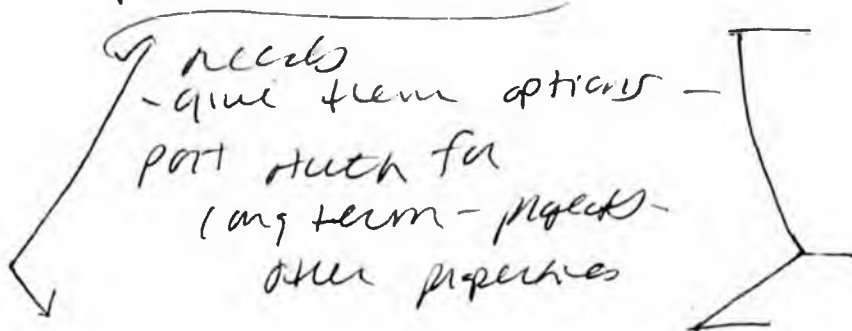 needs
- give them options -
port auth for
long term - projects -
other properties